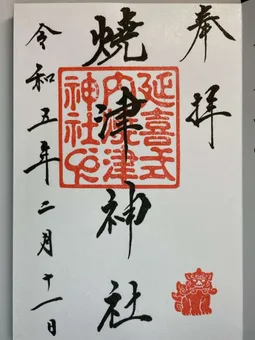 奉拝
焼津神社
延喜式
内焼津
神社之印
令和五年二月十一日